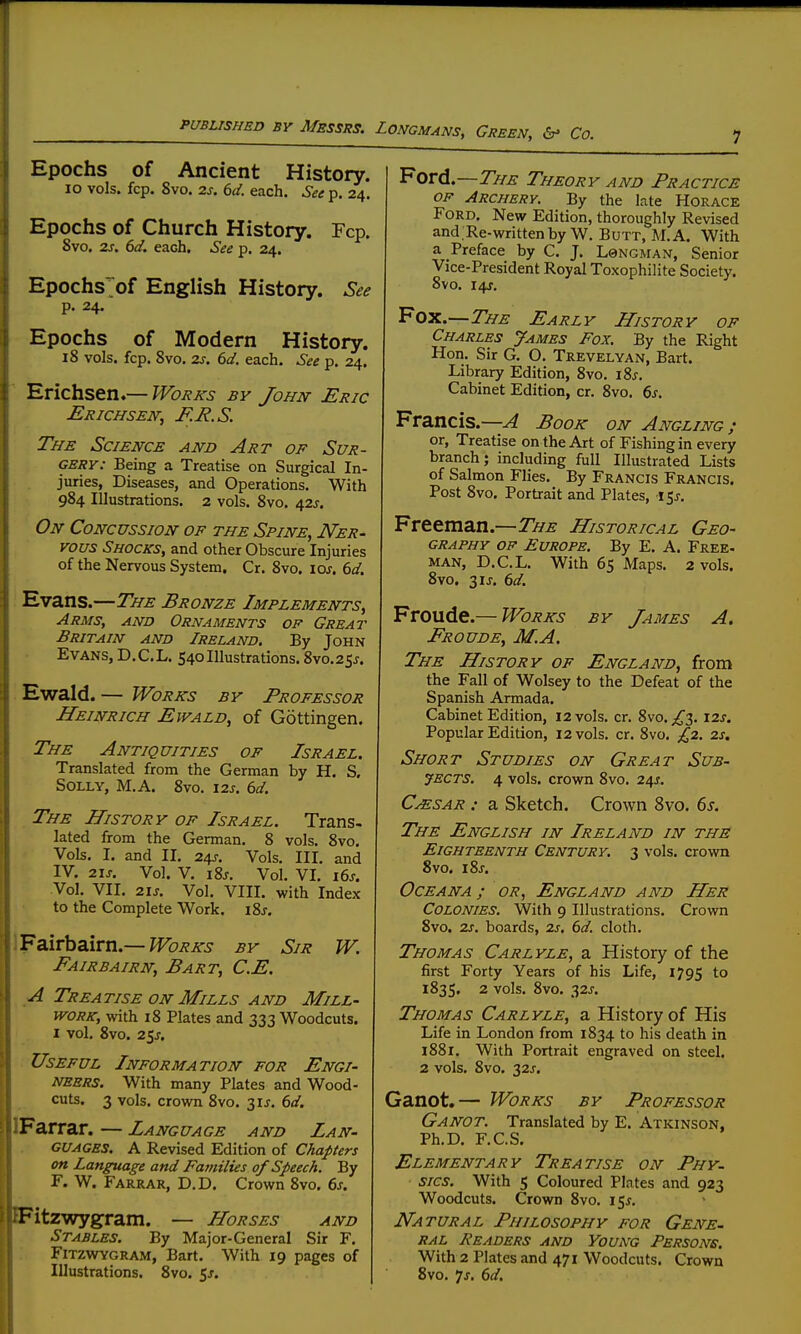 PUBLISHED BY MESSRS. LONGMANS, GREEN, & CO. 7
Epochs of Ancient History.
10 vols. fcp. 8vo. 2s. 6d. each. See p. 24.
Epochs of Church History. Fcp.
8vo. 2s. 6d. each. See p. 24.
Epochs of English History. See
p. 24.
Epochs of Modern History.
18 vols. fcp. 8vo. 2s. 6d. each. See p. 24.
Erichsen.—WORKS BY JOHN ERIC
ERICHSEN, F.R.S.
THE SCIENCE AND ART OF SUR-
GERY: Being a Treatise on Surgical In-
juries, Diseases, and Operations. With
984 Illustrations. 2 vols. 8vo. 42s.
ON CONCUSSION OF THE SPINE, NER-
VOUS SHOCKS, and other Obscure Injuries
of the Nervous System. Cr. 8vo. 10s. 6d.
Evans.—THE BRONZE IMPLEMENTS,
ARMS, AND ORNAMENTS OF GREAT
BRITAIN AND IRELAND. By JOHN
EVANS, D.C.L. 540 Illustrations. 8vo. 25s.
Ewald.— WORKS BY PROFESSOR
HEINRICH EWALD, of Göttingen.
THE ANTIQUITIES OF ISRAEL.
Translated from the German by H. S.
SOLLY, M.A. 8vo. 12s. 6d.
THE HISTORY OF ISRAEL. Trans-
lated from the German. 8 vols. 8vo.
Vols. I. and II. 24s. Vols. III. and
IV. 21s. Vol. V. 18s. Vol. VI. 16s.
Vol. VII. 21s. Vol. VIII. with Index
to the Complete Work. 18s.
Fairbairn.—WORKS BY SIR W.
FAIRBAIRN, BART, C.E.
A TREATISE ON MILLS AND MILL-
WORK, with 18 Plates and 333 Woodcuts.
1 vol. 8vo. 25s.
USEFUL INFORMATION FOR ENGI-
NEERS. With many Plates and Wood-
cuts. 3 vols. crown 8vo. 31s. 6d.
Farrar. — LANGUAGE AND LAN-
GUAGES. A Revised Edition of Chapters
on Language and Families of Speech. By
F. W. FARRAR, D.D. Crown 8vo. 6s.
Fitzwygram. — HORSES AND
STABLES. By Major-General Sir F.
FITZWYGRAM, Bart. With 19 pages of
Illustrations. 8vo. 5s.
Ford.—THE THEORY AND PRACTICE
OF ARCHERY. By the late HORACE
FORD. New Edition, thoroughly Revised
and Re-written by W. BUTT, M.A. With
a Preface by C. J. LONGMAN, Senior
Vice-President Royal Toxophilite Society.
8vo. 14s.
Fox.—THE EARLY HISTORY OF
CHARLES JAMES FOX. By the Right
Hon. Sir G. O. TREVELYAN, Bart.
Library Edition, 8vo. 18s.
Cabinet Edition, cr. 8vo. 6s.
Francis.—A BOOK ON ANGLING;
or, Treatise on the Art of Fishing in every
branch; including full Illustrated Lists
of Salmon Flies. By FRANCIS FRANCIS.
Post 8vo. Portrait and Plates, 15s.
Freeman.—THE HISTORICAL GEO-
GRAPHY OF EUROPE. By E. A. FREE-
MAN, D.C.L. With 65 Maps. 2 vols.
8vo. 31s. 6d.
Froude.—WORKS BY JAMES A.
FROUDE, M.A.
THE HISTORY OF ENGLAND, from
the Fall of Wolsey to the Defeat of the
Spanish Armada.
Cabinet Edition, 12 vols. cr. 8vo. £3. 12s.
Popular Edition, 12 vols. cr. 8vo. £2. 2s.
SHORT STUDIES ON GREAT SUB-
JECTS. 4 vols. crown 8vo. 24s.
CÆSAR: a Sketch. Crown 8vo. 6s.
THE ENGLISH IN IRELAND IN THE
EIGHTEENTH CENTURY. 3 vols. crown
8vo. 18s.
OCEANA; OR, ENGLAND AND HER
COLONIES. With 9 Illustrations. Crown
8vo. 2s. boards, 2s. 6d. cloth.
THOMAS CARLYLE, a History of the
first Forty Years of his Life, 1795 to
1835. 2 vols. 8vo. 32s.
THOMAS CARLYLE, a History of His
Life in London from 1834 to his death in
1881. With Portrait engraved on steel.
2 vols. 8vo. 32s.
Ganot.— WORKS BY PROFESSOR
GANOT. Translated by E. ATKINSON,
Ph.D. F.C.S.
ELEMENTARY TREATISE ON PHY-
SICS. With 5 Coloured Plates and 923
Woodcuts. Crown 8vo. 15s.
NATURAL PHILOSOPHY FOR GENE-
RAL READERS AND YOUNG PERSONS.
With 2 Plates and 471 Woodcuts. Crown
8vo. 7s. 6d.